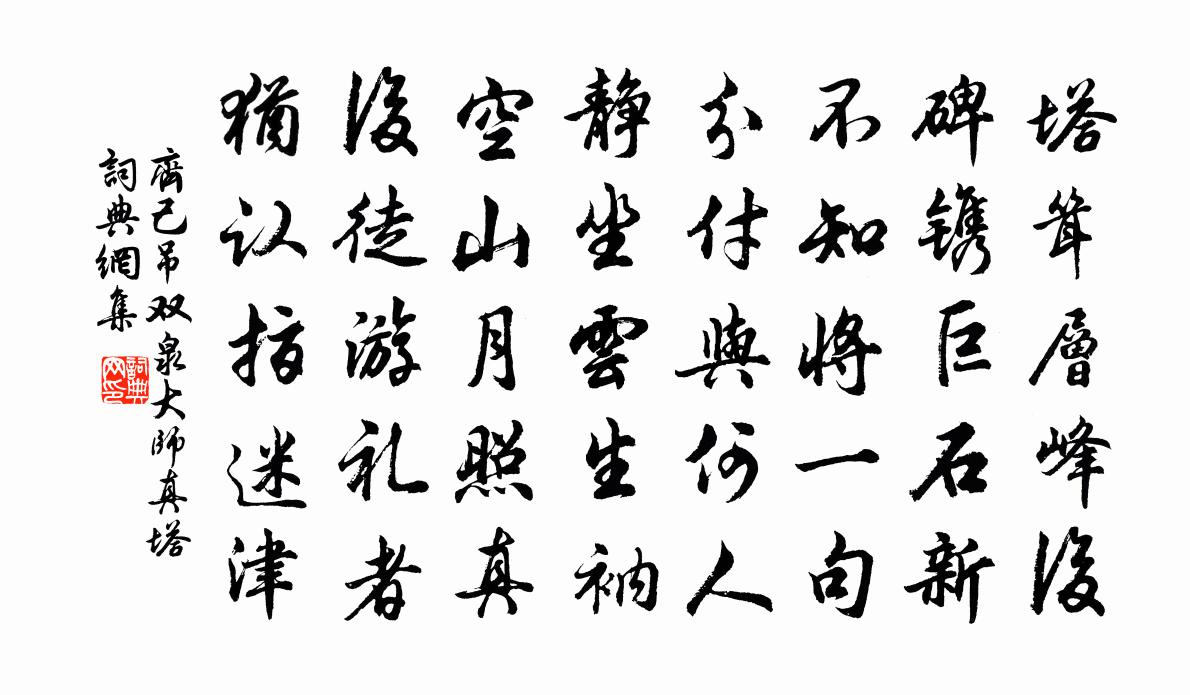 塔耸層峰後
碑镌巨石新
不知將一句
分付與何人
静坐雲生衲
空山月照真
後徒游礼者
猶认指迷津
齊己吊双泉大師真塔
詞典網集
詞典网印